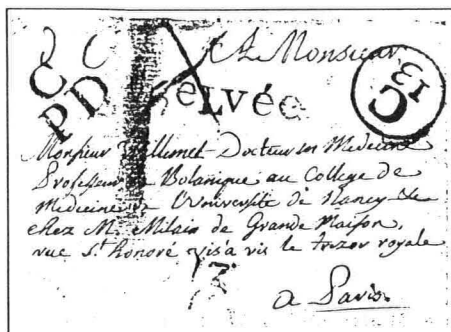 A Monsieur
C
PD
HELVÉC
C
13
Monsieur Docteur en Medecine
Professeur de Botanique au College de
Medecine de l'Université de Nancy
chez M. Milain de Grande Maison,
rue St. honoré vis'a vis le trezor royale
a Paris.